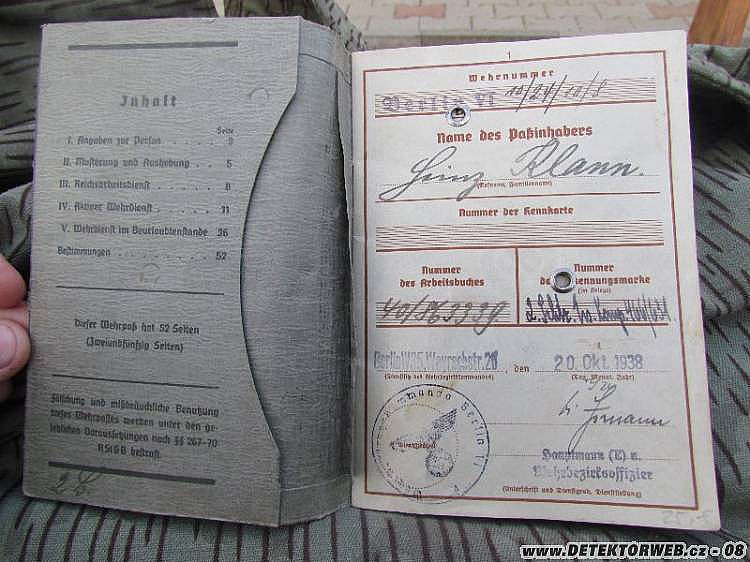 Inhalt
Seite
I. Angaben zur Person . . . 3
II. Musterung und Aushebung . . 5
III. Reichsarbeitsdienst . . . . 8
IV. Aktiver Wehrdienst . . . . 11
V. Wehrdienst im Beurlaubtenstande 36
Bestimmungen . . . . . . . 52
Dieser Wehrpaß hat 52 Seiten
(Zweiundfünfzig Seiten)
Fälschung und mißbräuchliche Benutzung
dieses Wehrpasses werden unter den ge-
setzlichen Voraussetzungen nach §§ 267–70
RStGB bestraft.
1
Wehrnummer
Berlin VI 10/24/10/8
Name des Paßinhabers
Heinz Klann.
(Rufname, Familienname)
Nummer der Kennkarte
Nummer
des Arbeitsbuches
Nummer
der Erkennungsmarke
Berlin W35, Woyrschstr. 28, den 20. Okt. 1938
(Dienstsitz des Wehrbezirkskommandos)
(Tag, Monat, Jahr)
Hauptmann (E) u.
Wehrbezirksoffizier
(Unterschrift und Dienstgrad, Dienststellung)
www.DETEKTORWEB.cz - 08